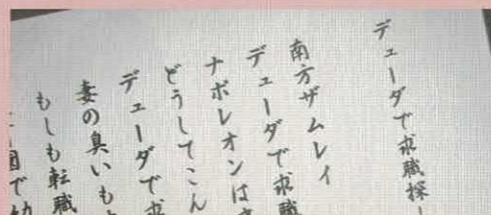 デューダで求職探
南方ザムレイ
デューダで求職
ナポレオンは
どうしてこん
デューダで求
妻の臭いも
もしも転職